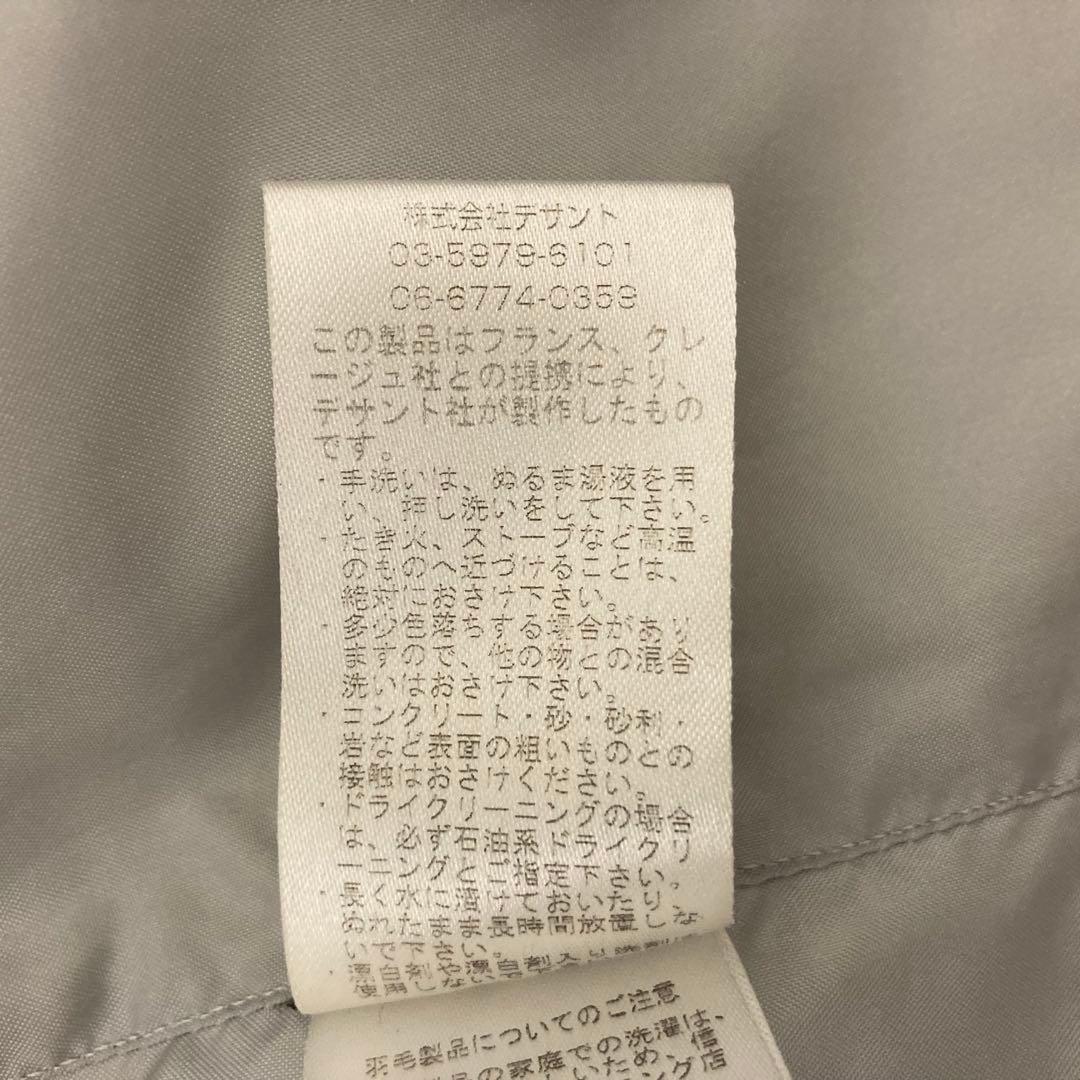 株式会社デサント
03-5979-6101
06-6774-0359
この製品はフランス、クレ
ージュ社との提携により、
デサント社が製作したもの
です。
・手洗いは、ぬるま湯液を用
い、押し洗いをして下さい。
・たき火、ストーブなど高温
のものへ近づけることは、
絶対におさけ下さい。
・多少色落ちする場合があり
ますので、他の物との混合
洗いはおさけ下さい。
・コンクリート・砂・砂利・
岩など表面の粗いものとの
接触はおさけください。
・ドライクリーニングの場合
は、必ず石油系ドライクリ
ーニングとご指定下さい。
・長く水に漬けておいたり、
ぬれたまま長時間放置しな
いで下さい。
・漂白剤や漂白剤
使用しな
羽毛製品についてのご注意
品の家庭での洗濯は、
しいため、信
ング店